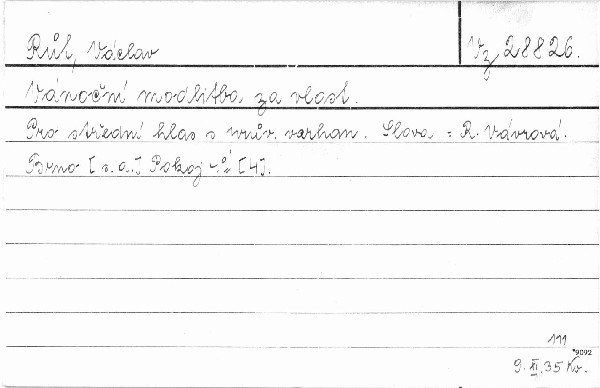 Růl, Václav
Vz 28826.
Vánoční modlitba za vlast.
Pro střední hlas s prův. varhan. Slova : R. Vávrová.
Brno [s.a.] Pokoj [4].
111
*9092
9.XI.35 Kv.